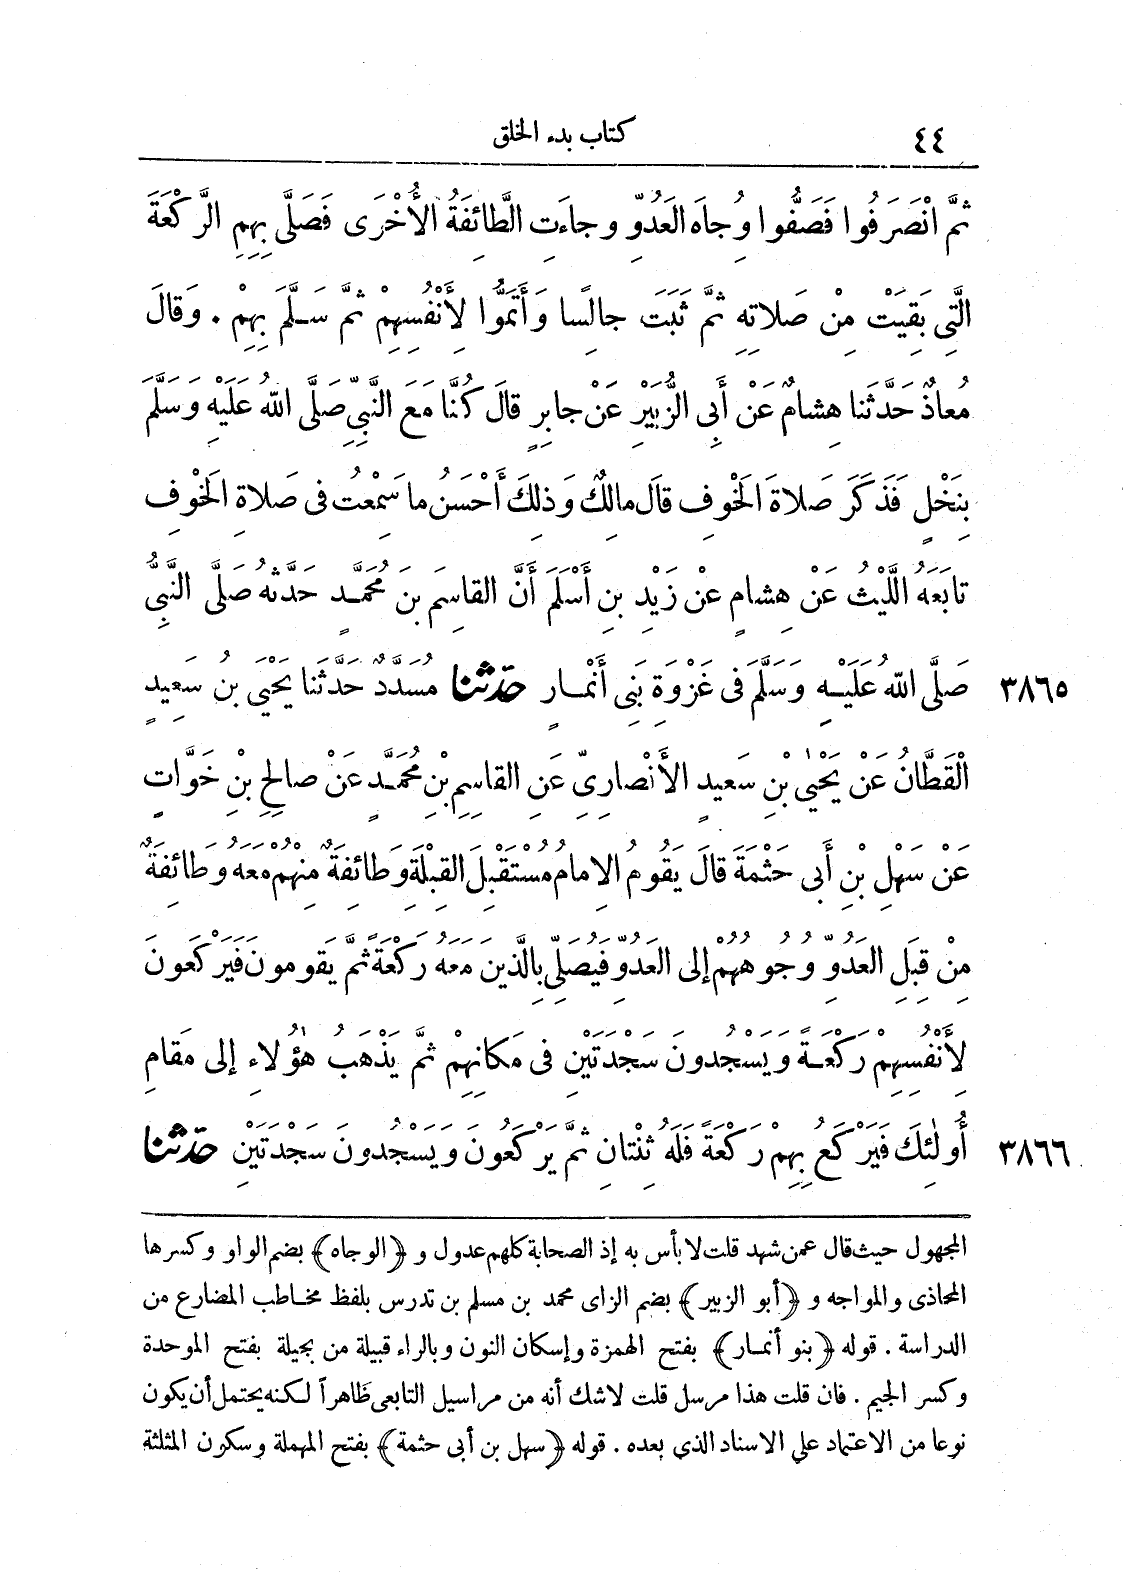 ٤٤ كتاب بدء الخلق
ثُمَّ انْصَرَفُوا فَصَفُّوا وُجاهَ العَدُوِّ وجاءَتِ الطَّائِفَةُ الأُخْرَى فَصَلَّى بِهِمِ الرَّكْعَةَ
الَّتِى بَقِيَتْ مِنْ صَلاتِهِ ثُمَّ ثَبَتَ جالِسًا وَأَتَمُّوا لِأَنْفُسِهِمْ ثُمَّ سَلَّمَ بِهِمْ . وَقالَ
مُعاذٌ حَدَّثَنا هِشامٌ عَنْ أَبِى الزُّبَيْرِ عَنْ جابِرٍ قالَ كُنَّا مَعَ النَّبِيِّ صَلَّى اللهُ عَلَيْهِ وَسَلَّمَ
بِنَخْلٍ فَذَكَرَ صَلاةَ الخَوْفِ قالَ مالِكٌ وَذلِكَ أَحْسَنُ ما سَمِعْتُ فى صَلاةِ الخَوْفِ
تابَعَهُ اللَّيْثُ عَنْ هِشامٍ عَنْ زَيْدِ بنِ أَسْلَمَ أَنَّ القاسِمَ بنَ مُحَمَّدٍ حَدَّثَهُ صَلَّى النَّبِيُّ
صَلَّى اللهُ عَلَيْهِ وَسَلَّمَ فى غَزْوَةِ بَنِى أَنْمارٍ حدثنا مُسَدَّدٌ حَدَّثَنا يَحْيَى بنُ سَعِيدٍ ٣٨٦٥
الْقَطَّانُ عَنْ يَحْيٰى بْنِ سَعِيدٍ الأَنْصارِىِّ عَنِ القاسِمِ بْنِ مُحَمَّدٍ عَنْ صالِحِ بْنِ خَوَّاتٍ
عَنْ سَهْلِ بْنِ أَبى حَثْمَةَ قالَ يَقُومُ الإِمامُ مُسْتَقْبِلَ القِبْلَةِ وَطائِفَةٌ مِنْهُمْ مَعَهُ وَطائِفَةٌ
مِنْ قِبَلِ العَدُوِّ وُجُوهُهُمْ إلى العَدُوِّ فَيُصَلِّى بِالَّذِينَ مَعَهُ رَكْعَةً ثُمَّ يَقُومُونَ فَيَرْكَعُونَ
لِأَنْفُسِهِمْ رَكْعَةً وَيَسْجُدُونَ سَجْدَتَيْنِ فى مَكانِهِمْ ثُمَّ يَذْهَبُ هٰؤُلاءِ إلى مَقامِ
أُولٰئِكَ فَيَرْكَعُ بِهِمْ رَكْعَةً فَلَهُ ثِنْتانِ ثُمَّ يَرْكَعُونَ وَيَسْجُدُونَ سَجْدَتَيْنِ حدثنا ٣٨٦٦
المجهول حيث قال عمن شهد قلت لا بأس به إذ الصحابة كلهم عدول و ﴿الوجاه﴾ بضم الواو وكسرها
المحاذى والمواجه و ﴿أبو الزبير﴾ بضم الزاى محمد بن مسلم بن تدرس بلفظ مخاطب المضارع من
الدراسة . قوله ﴿بنو أنمار﴾ بفتح الهمزة وإسكان النون وبالراء قبيلة من بجيلة بفتح الموحدة
وكسر الجيم . فان قلت هذا مرسل قلت لاشك أنه من مراسيل التابعى ظاهراً لكنه يحتمل أن يكون
نوعا من الاعتماد على الاسناد الذى بعده . قوله ﴿سهل بن أبى حثمة﴾ بفتح المهملة وسكون المثلثة